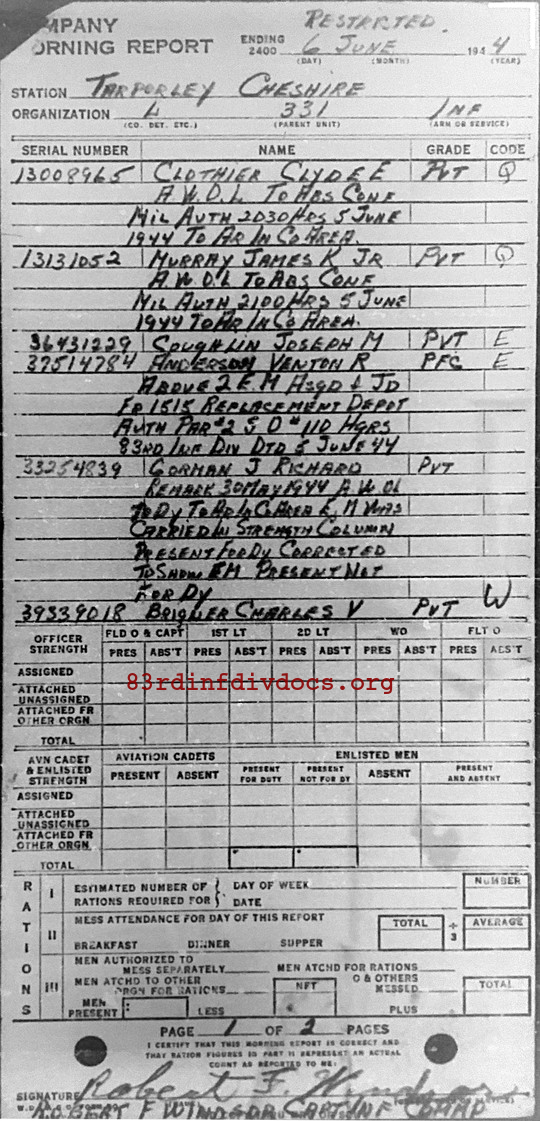 MPANY
ORNING REPORT
RESTRICTED.
ENDING 2400 6 JUNE 1944
(DAY) (MONTH) (YEAR)
STATION TARPORLEY CHESHIRE
ORGANIZATION L 331 INF
(CO. DET. ETC.) (PARENT UNIT) (ARM OR SERVICE)
SERIAL NUMBER NAME GRADE CODE
13008965 CLOTHIER CLYDE E PVT Q
A.W.O.L TO ABS CONF
MIL AUTH 2030 HRS 5 JUNE
1944 TO AR IN CO AREA.
13131052 MURRAY JAMES K JR PVT Q
A.W.O.L TO ABS CONF
MIL AUTH 2100 HRS 5 JUNE
1944 TO AR IN CO AREA.
36431229 COUGHLIN JOSEPH M PVT E
37514784 ANDERSON VENTON R PFC E
ABOVE 2 E.M ASGD & JD
FR 1515 REPLACEMENT DEPOT
AUTH PAR #2 S O #110 HQRS
83RD INF DIV DTD 5 JUNE 44
33254839 GORMAN J RICHARD PVT
REMARK 30 MAY 1944 A.W.OL
TO DY TO AR IN CO AREA E.M WAS
CARRIED IN STRENGTH COLUMN
PRESENT FOR DY CORRECTED
TO SHOW EM PRESENT NOT
FOR DY
39339018 BRIGNER CHARLES V PVT W
OFFICER STRENGTH FLD O & CAPT 1ST LT 2D LT WO FLT O
PRES ABS'T PRES ABS'T PRES ABS'T PRES ABS'T PRES ABS'T
ASSIGNED
83rdinfdivdocs.org
ATTACHED UNASSIGNED
ATTACHED FR OTHER ORGN
TOTAL
AVN CADET & ENLISTED STRENGTH AVIATION CADETS ENLISTED MEN
PRESENT ABSENT PRESENT FOR DUTY PRESENT NOT FOR DY ABSENT PRESENT AND ABSENT
ASSIGNED
ATTACHED UNASSIGNED
ATTACHED FR OTHER ORGN.
TOTAL
RATIONS
I ESTIMATED NUMBER OF RATIONS REQUIRED FOR DAY OF WEEK DATE NUMBER
II MESS ATTENDANCE FOR DAY OF THIS REPORT TOTAL ÷ 3 AVERAGE
BREAKFAST DINNER SUPPER
III MEN AUTHORIZED TO MESS SEPARATELY MEN ATCHD FOR RATIONS
MEN ATCHD TO OTHER ORGN FOR RATIONS NET O & OTHERS MESSED TOTAL
MEN PRESENT LESS PLUS
PAGE 1 OF 2 PAGES
I CERTIFY THAT THIS MORNING REPORT IS CORRECT AND
THAT RATION FIGURES IN PART II REPRESENT AN ACTUAL
COUNT AS REPORTED TO ME:
SIGNATURE Robert F. Windsor
ROBERT F WINDSOR CAPT INF COMMD